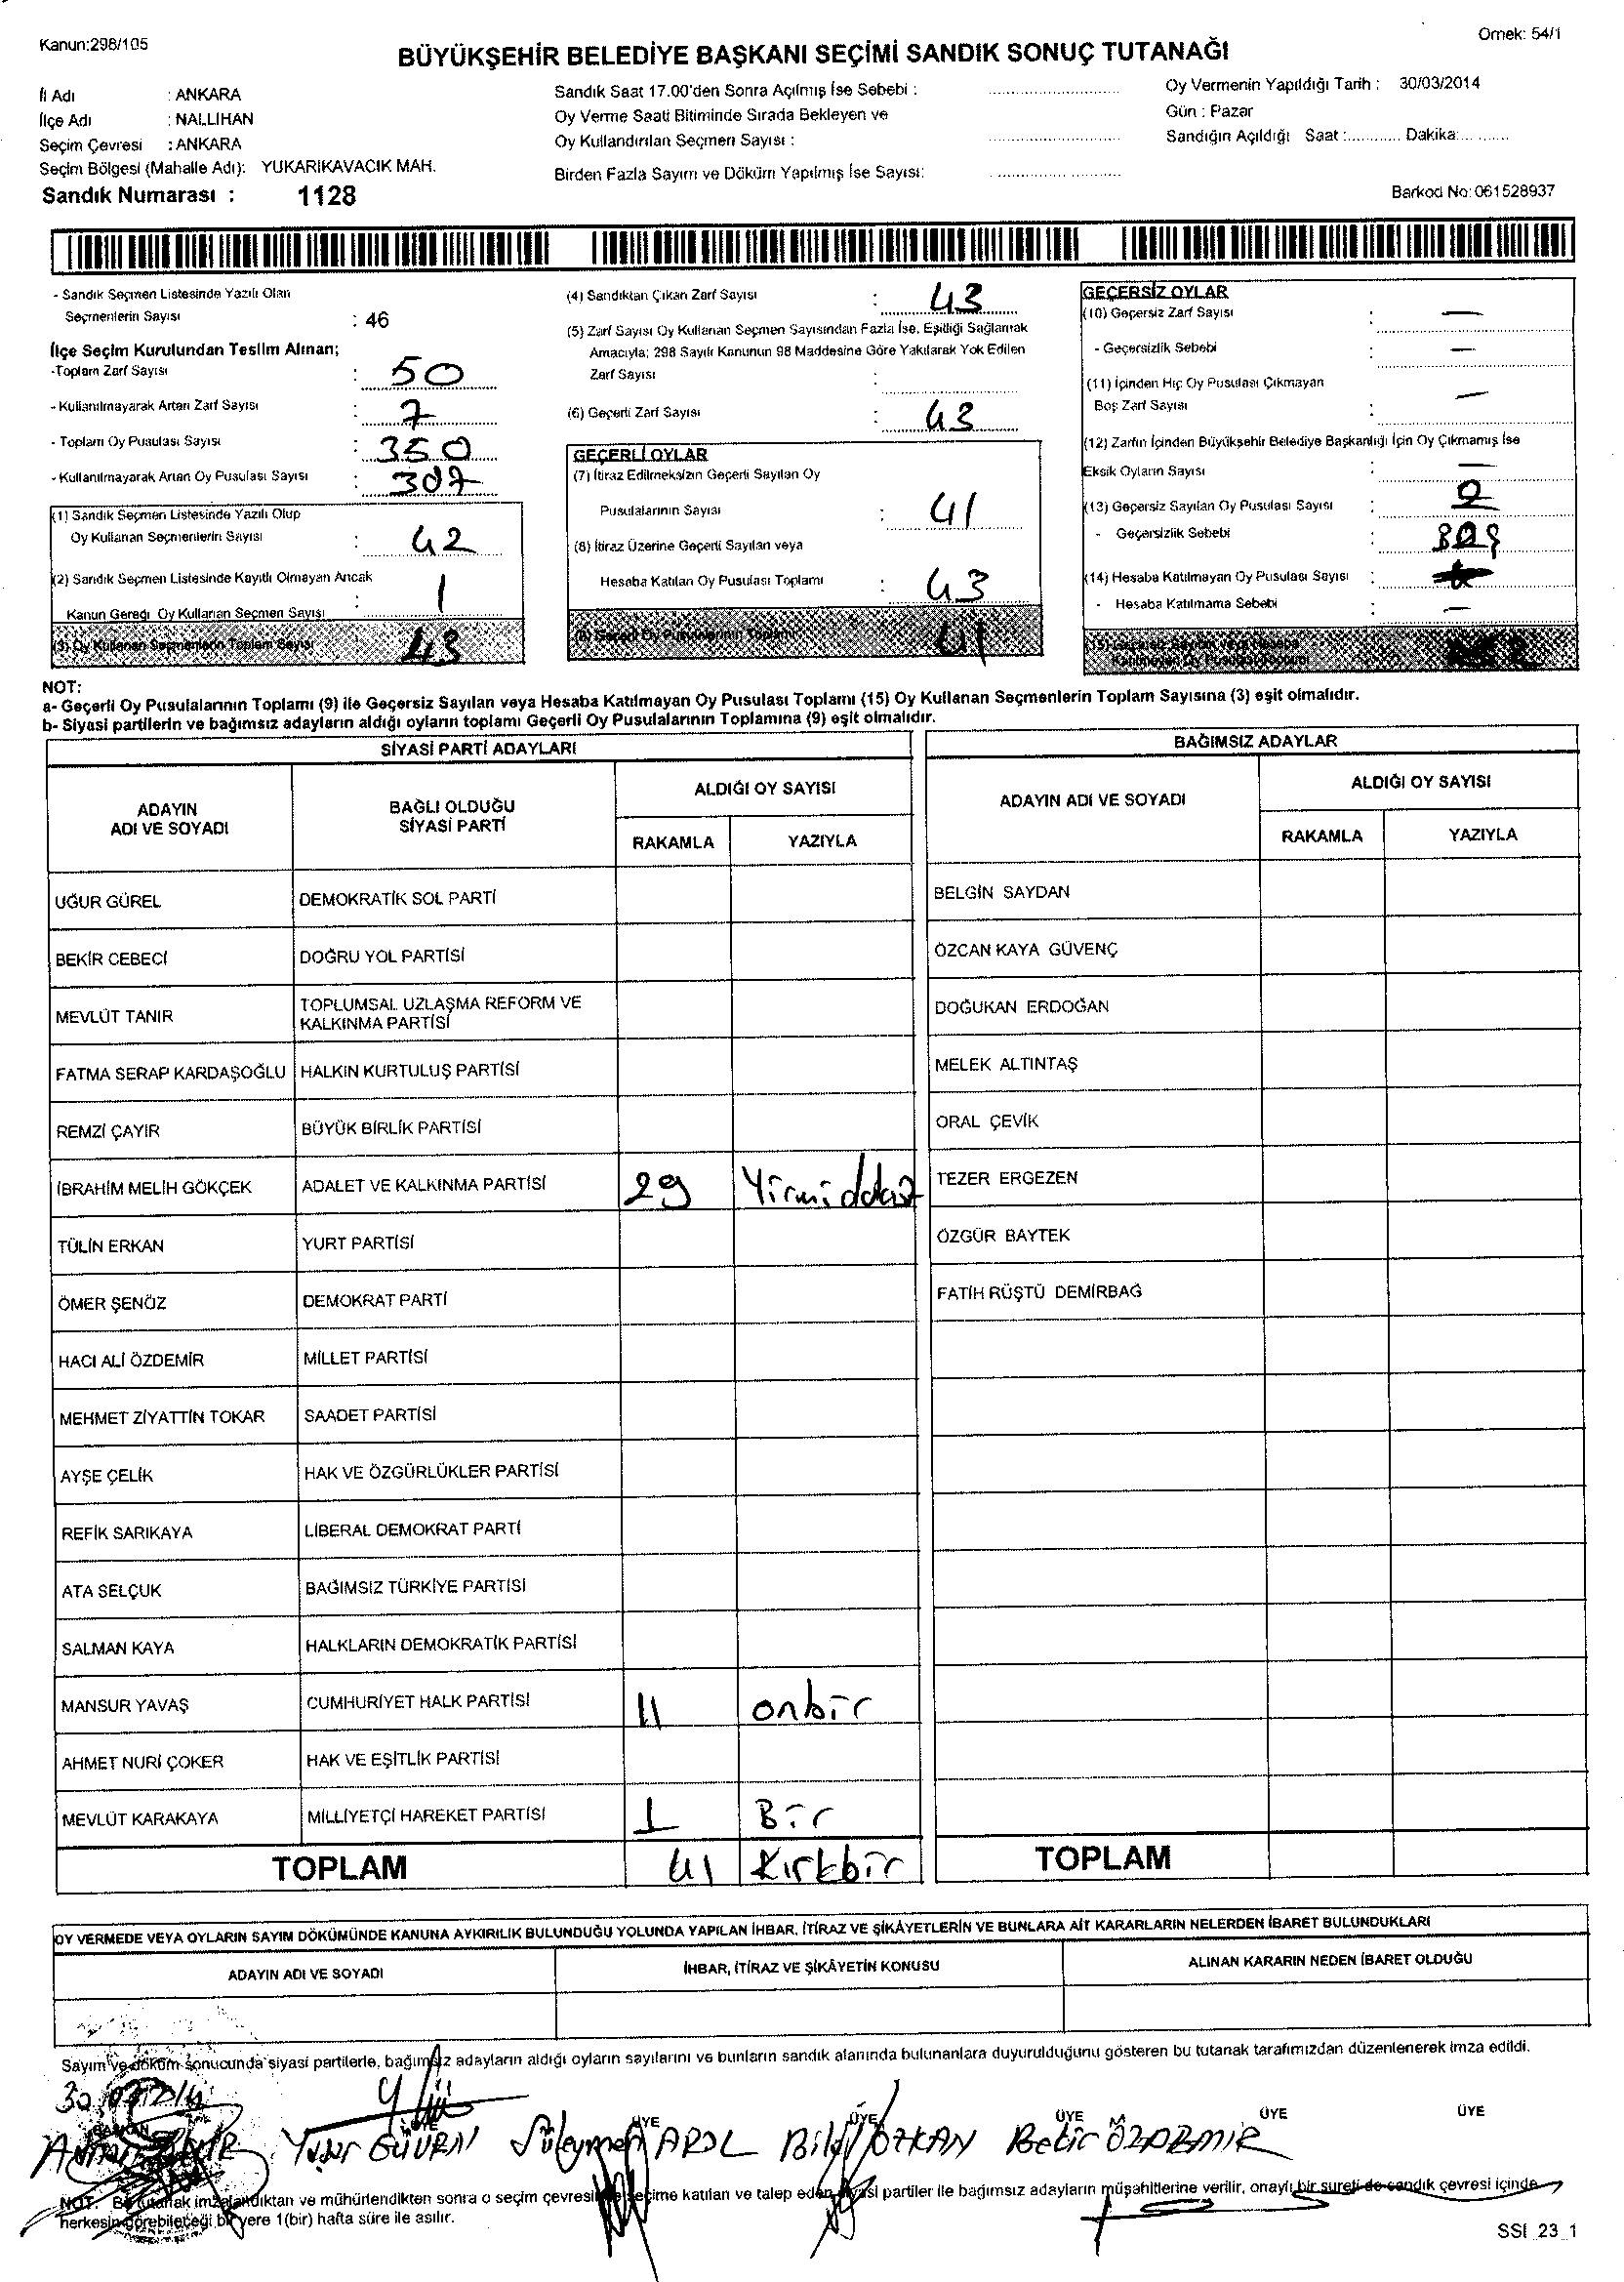 Kanun:298/105
Örnek: 54/1
BÜYÜKŞEHİR BELEDİYE BAŞKANI SEÇİMİ SANDIK SONUÇ TUTANAĞI
İl Adı : ANKARA
İlçe Adı : NALLIHAN
Seçim Çevresi : ANKARA
Seçim Bölgesi (Mahalle Adı): YUKARIKAVACIK MAH.
Sandık Numarası : 1128
Sandık Saat 17.00'den Sonra Açılmış İse Sebebi :
Oy Verme Saati Bitiminde Sırada Bekleyen ve
Oy Kullandırılan Seçmen Sayısı :
Birden Fazla Sayım ve Döküm Yapılmış İse Sayısı:
Oy Vermenin Yapıldığı Tarih : 30/03/2014
Gün : Pazar
Sandığın Açıldığı Saat :............ Dakika:............
Barkod No: 061528937
- Sandık Seçmen Listesinde Yazılı Olan
Seçmenlerin Sayısı : 46
İlçe Seçim Kurulundan Teslim Alınan;
-Toplam Zarf Sayısı : 50
- Kullanılmayarak Artan Zarf Sayısı : 7
- Toplam Oy Pusulası Sayısı : 350
- Kullanılmayarak Artan Oy Pusulası Sayısı : 307
(1) Sandık Seçmen Listesinde Yazılı Olup
Oy Kullanan Seçmenlerin Sayısı : 42
(2) Sandık Seçmen Listesinde Kayıtlı Olmayan Ancak
Kanun Gereği Oy Kullanan Seçmen Sayısı : 1
(3) Oy Kullanan Seçmenlerin Toplam Sayısı 43
(4) Sandıktan Çıkan Zarf Sayısı : 43
(5) Zarf Sayısı Oy Kullanan Seçmen Sayısından Fazla İse, Eşitliği Sağlamak
Amacıyla; 298 Sayılı Kanunun 98 Maddesine Göre Yakılarak Yok Edilen
Zarf Sayısı :
(6) Geçerli Zarf Sayısı : 43
GEÇERLİ OYLAR
(7) İtiraz Edilmeksizin Geçerli Sayılan Oy
Pusulalarının Sayısı : 41
(8) İtiraz Üzerine Geçerli Sayılan veya
Hesaba Katılan Oy Pusulası Toplamı : 43
(9) Geçerli Oy Pusulalarının Toplamı 41
GEÇERSİZ OYLAR
(10) Geçersiz Zarf Sayısı : —
- Geçersizlik Sebebi : —
(11) İçinden Hiç Oy Pusulası Çıkmayan
Boş Zarf Sayısı : —
(12) Zarfın İçinden Büyükşehir Belediye Başkanlığı İçin Oy Çıkmamış İse
Eksik Oyların Sayısı : —
(13) Geçersiz Sayılan Oy Pusulası Sayısı : 2
- Geçersizlik Sebebi : Boş
(14) Hesaba Katılmayan Oy Pusulası Sayısı :
- Hesaba Katılmama Sebebi : —
(15) Geçersiz Sayılan veya Hesaba
Katılmayan Oy Pusulası Toplamı
NOT:
a- Geçerli Oy Pusulalarının Toplamı (9) ile Geçersiz Sayılan veya Hesaba Katılmayan Oy Pusulası Toplamı (15) Oy Kullanan Seçmenlerin Toplam Sayısına (3) eşit olmalıdır.
b- Siyasi partilerin ve bağımsız adayların aldığı oyların toplamı Geçerli Oy Pusulalarının Toplamına (9) eşit olmalıdır.
SİYASİ PARTİ ADAYLARI
ADAYIN ADI VE SOYADI
BAĞLI OLDUĞU SİYASİ PARTİ
ALDIĞI OY SAYISI
RAKAMLA YAZIYLA
UĞUR GÜREL DEMOKRATİK SOL PARTİ
BEKİR CEBECİ DOĞRU YOL PARTİSİ
MEVLÜT TANIR TOPLUMSAL UZLAŞMA REFORM VE
KALKINMA PARTİSİ
FATMA SERAP KARDAŞOĞLU HALKIN KURTULUŞ PARTİSİ
REMZİ ÇAYIR BÜYÜK BİRLİK PARTİSİ
İBRAHİM MELİH GÖKÇEK ADALET VE KALKINMA PARTİSİ 29 Yirmidokuz
TÜLİN ERKAN YURT PARTİSİ
ÖMER ŞENÖZ DEMOKRAT PARTİ
HACI ALİ ÖZDEMİR MİLLET PARTİSİ
MEHMET ZİYATTİN TOKAR SAADET PARTİSİ
AYŞE ÇELİK HAK VE ÖZGÜRLÜKLER PARTİSİ
REFİK SARIKAYA LİBERAL DEMOKRAT PARTİ
ATA SELÇUK BAĞIMSIZ TÜRKİYE PARTİSİ
SALMAN KAYA HALKLARIN DEMOKRATİK PARTİSİ
MANSUR YAVAŞ CUMHURİYET HALK PARTİSİ 11 onbir
AHMET NURİ ÇOKER HAK VE EŞİTLİK PARTİSİ
MEVLÜT KARAKAYA MİLLİYETÇİ HAREKET PARTİSİ 1 Bir
TOPLAM 41 Kırkbir
BAĞIMSIZ ADAYLAR
ADAYIN ADI VE SOYADI
ALDIĞI OY SAYISI
RAKAMLA YAZIYLA
BELGİN SAYDAN
ÖZCAN KAYA GÜVENÇ
DOĞUKAN ERDOĞAN
MELEK ALTINTAŞ
ORAL ÇEVİK
TEZER ERGEZEN
ÖZGÜR BAYTEK
FATİH RÜŞTÜ DEMİRBAĞ
TOPLAM
OY VERMEDE VEYA OYLARIN SAYIM DÖKÜMÜNDE KANUNA AYKIRILIK BULUNDUĞU YOLUNDA YAPILAN İHBAR, İTİRAZ VE ŞİKÂYETLERİN VE BUNLARA AİT KARARLARIN NELERDEN İBARET BULUNDUKLARI
ADAYIN ADI VE SOYADI İHBAR, İTİRAZ VE ŞİKÂYETİN KONUSU ALINAN KARARIN NEDEN İBARET OLDUĞU
Sayım ve döküm sonucunda siyasi partilerle, bağımsız adayların aldığı oyların sayılarını ve bunların sandık alanında bulunanlara duyurulduğunu gösteren bu tutanak tarafımızdan düzenlenerek imza edildi.
ÜYE ÜYE ÜYE ÜYE ÜYE
Yaşar GÜVEN Süleyman AROL ÖZKAN Bekir ÖZDEMİR
NOT: Bu tutanak imzalandıktan ve mühürlendikten sonra o seçim çevresinde seçime katılan ve talep eden siyasi partiler ile bağımsız adayların müşahitlerine verilir, onaylı bir sureti de sandık çevresi içinde
herkesin görebileceği bir yere 1(bir) hafta süre ile asılır.
SSI_23_1